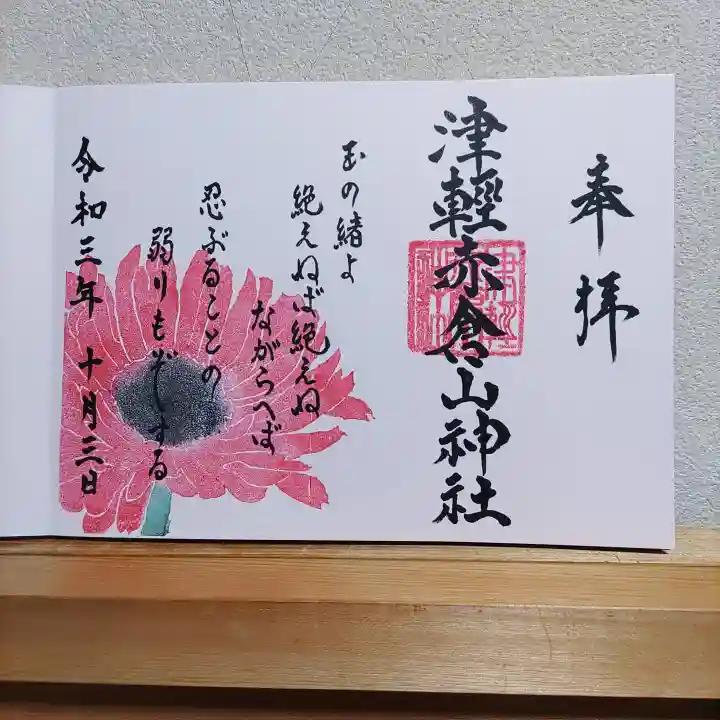 奉拝
津輕赤倉山神社
玉の緒よ
絶えねば絶えね
ながらへば
忍ぶることの
弱りもぞする
令和三年 十月三日